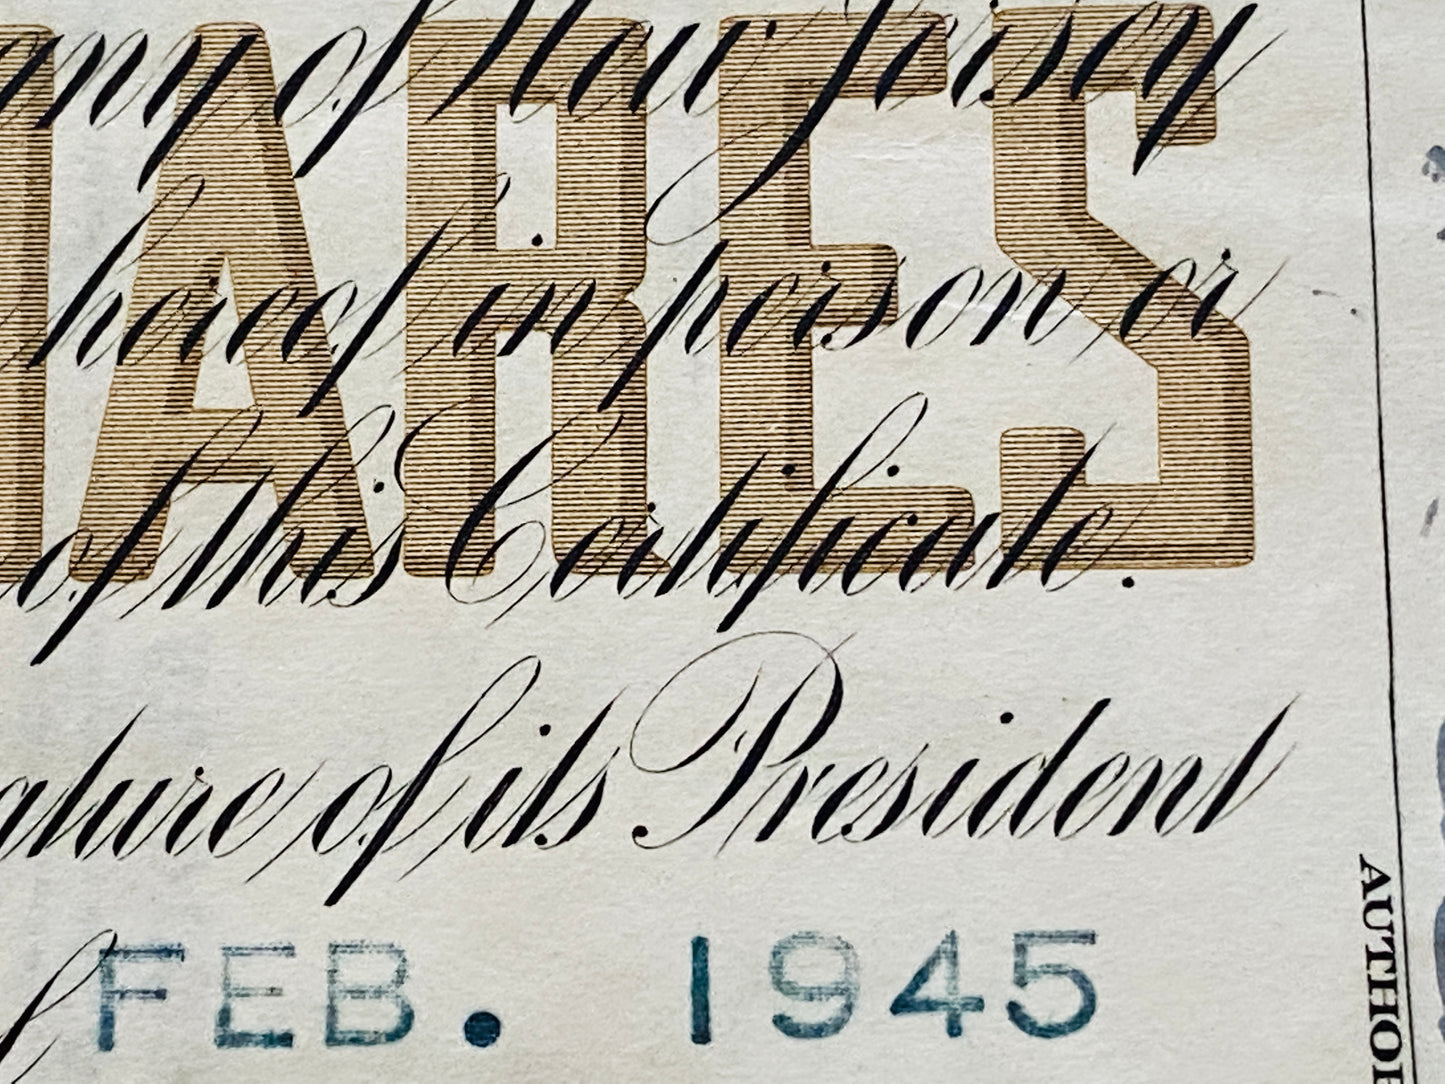 ARES
any of New Jersey
hereof in person or
of this Certificate.
ature of its President
f FEB. 1945
AUTHOR